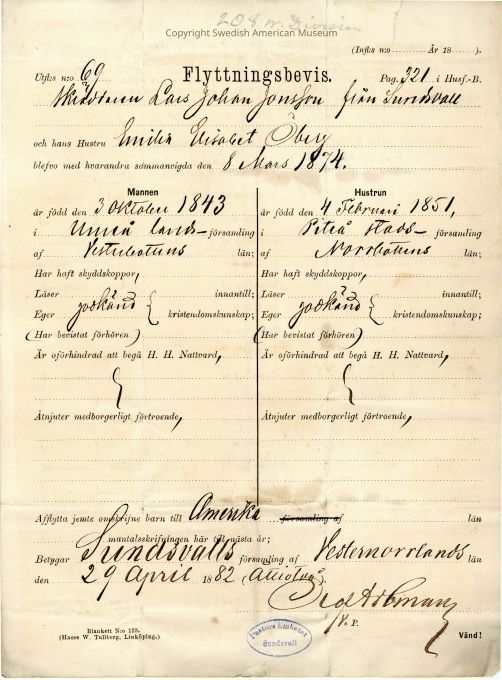 208 W. Division
Copyright Swedish American Museum
(Infl:s n:o År 18 ).
Utfl:s n:o 69 Flyttningsbevis. Pag. 321 i Husf.-B.
Skräddaren Lars Johan Jonsson från Sundsvall
och hans Hustru Emilia Elisabet Öberg
blefvo med hvarandra sammanvigda den 8 Mars 1874.
Mannen
är född den 3 Oktober 1843
i Umeå lands- församling
af Vesterbottens län;
Har haft skyddskoppor,
Läser innantill;
Eger godkänd kristendomskunskap;
(Har bevistat förhören)
Är oförhindrad att begå H. H. Nattvard,
Åtnjuter medborgerligt förtroende,
Hustrun
är född den 4 Februari 1851,
i Piteå stads- församling
af Norrbottens län;
Har haft skyddskoppor,
Läser innantill;
Eger godkänd kristendomskunskap;
(Har bevistat förhören)
Är oförhindrad att begå H. H. Nattvard,
Åtnjuter medborgerligt förtroende,
Afflytta jemte omskrifne barn till Amerika församling af län
mantalsskrifningen här till nästa år;
Betygar Sundsvalls församling af Vesternorrlands län
den 29 April 1882 (Åttiotvå).
v. P.
Pastors Embetet
Sundsvall
Blankett N:o 109.
(Hasse W. Tullberg, Linköping.)
Vänd!